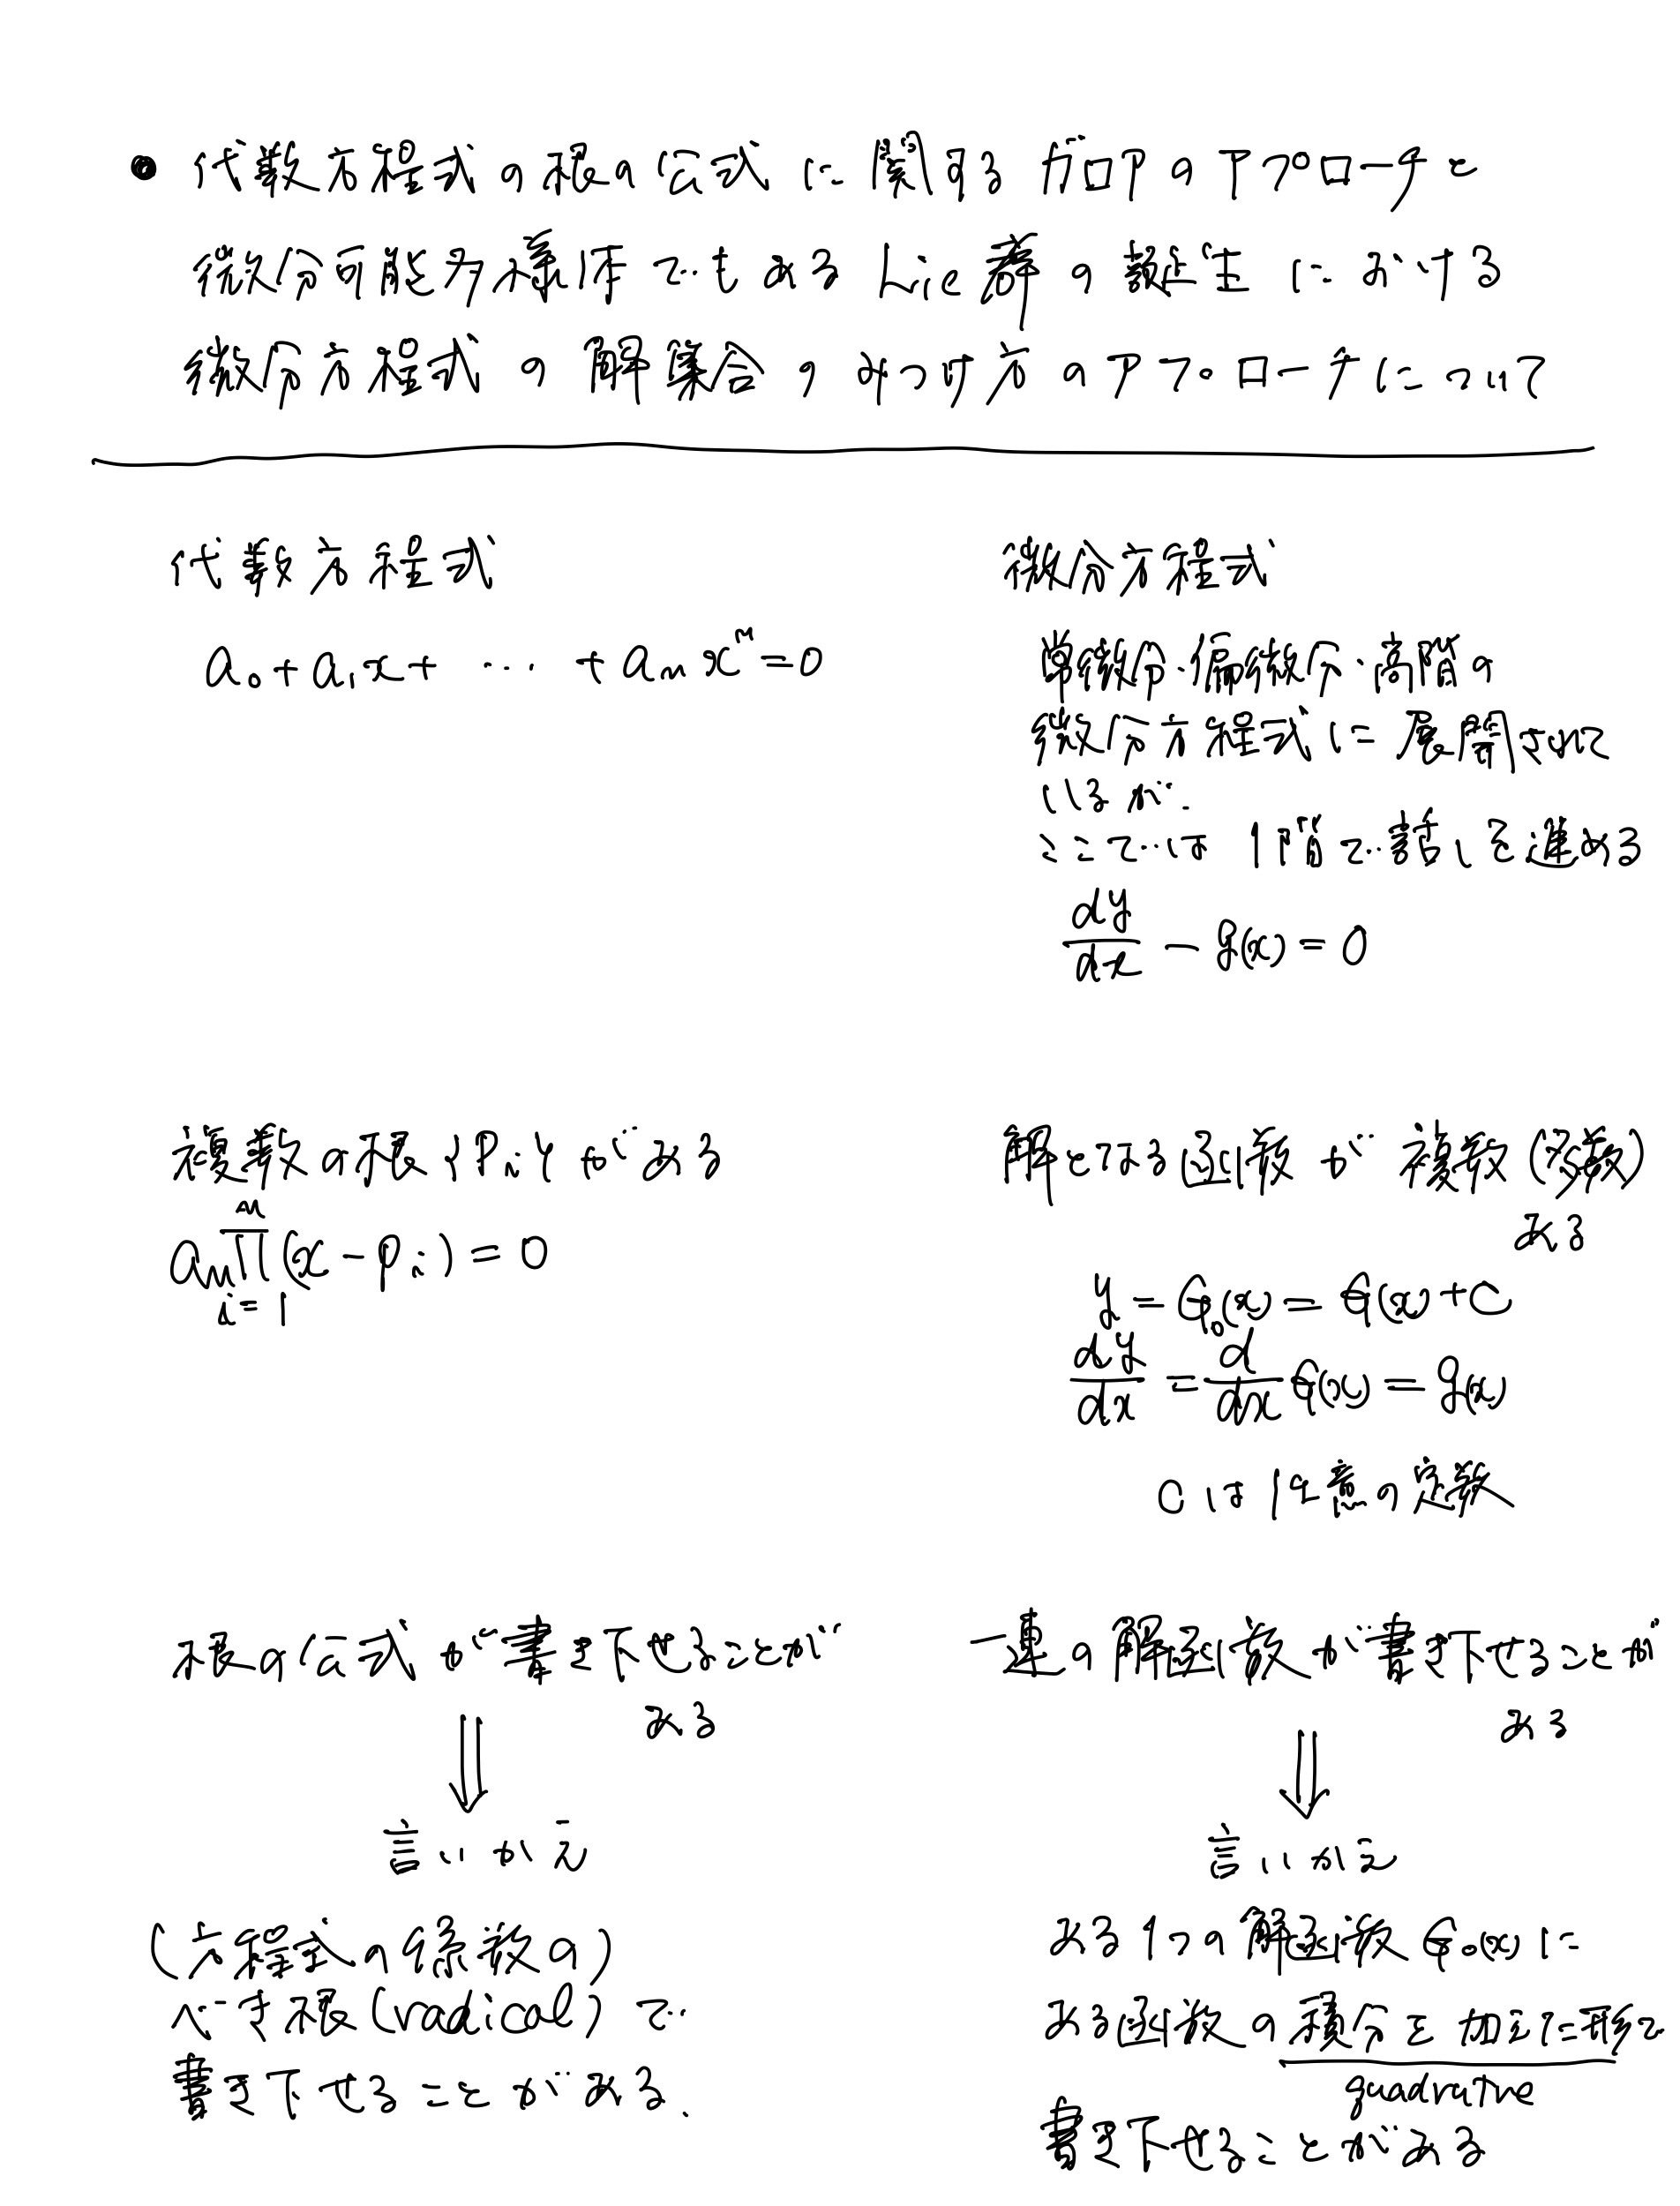 ● 代数方程式の根の公式に関するガロアのアプローチと
微分可能多様体でもあるLie群の誕生における
微分方程式の解集合のみつけ方のアプローチについて
代数方程式
a₀+a₁x+ ‥‥ +aₙxⁿ=0
複数の根{Pᵢ}がある
n
aₙΠ(x-pᵢ)=0
i=1
根の公式が書き下せることが
ある
⇓
言いかえ
(方程式の係数の)
べき根(radical)で
書き下せることがある.
微分方程式
常微分・偏微分・高階の
微分方程式に展開されて
いるが.
ここでは1階で話しを進める
dy/dx - g(x) = 0
解となる函数が複数(多数)
ある
y = G₀(x) = G(x)+C
dy/dx = d/dx G(x) = g(x)
Cは任意の定数
一連の解函数が書き下せることが
ある
⇓
言いかえ
ある1つの解函数G₀(x)に
ある函数の積分を加えた形で
quadratre
書き下せることがある